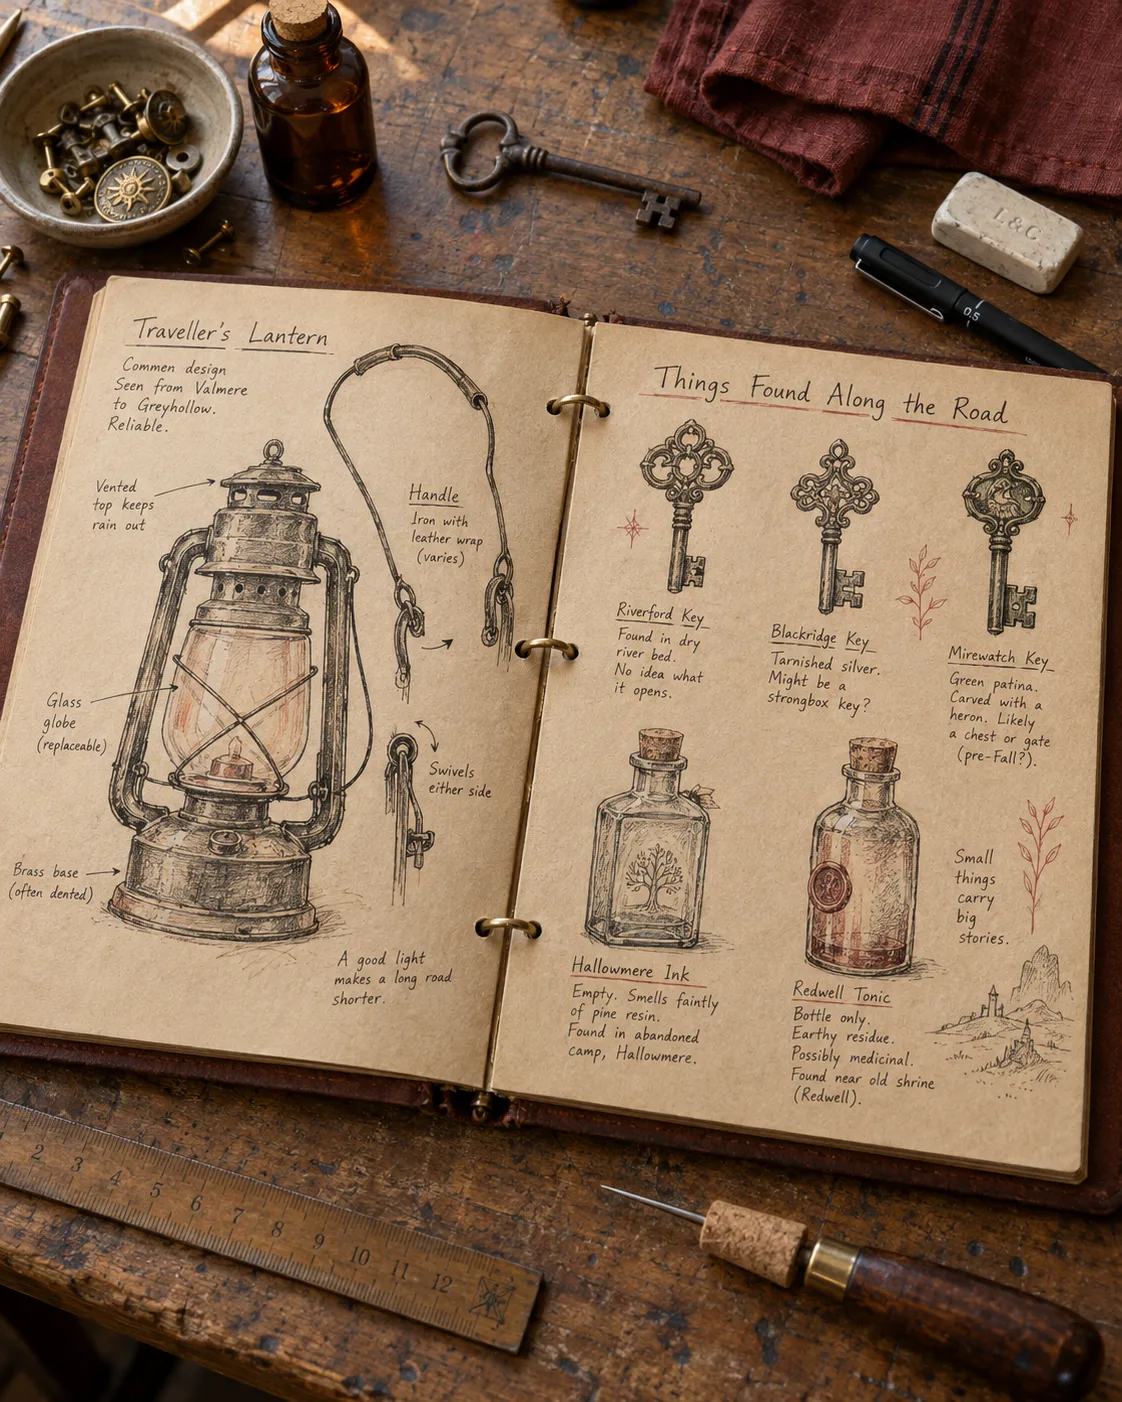 Traveller's Lantern
Commen design
Seen from Valmere
to Greyhollow.
Reliable.
Vented
top keeps
rain out
Handle
Iron with
leather wrap
(varies)
Glass
globe
(replaceable)
Swivels
either side
Brass base
(often dented)
A good light
makes a long road
shorter.
Things Found Along the Road
Riverford Key
Found in dry
river bed.
No idea what
it opens.
Blackridge Key
Tarnished silver.
Might be a
strongbox key?
Mirewatch Key
Green patina.
Carved with a
heron. Likely
a chest or gate
(pre-Fall?).
Hallowmere Ink
Empty. Smells faintly
of pine resin.
Found in abandoned
camp, Hallowmere.
Redwell Tonic
Bottle only.
Earthy residue.
Possibly medicinal.
Found near old shrine
(Redwell).
Small
things
carry
big
stories.
L&C
0.5
2 3 4 5 6 7 8 9 10 11 12